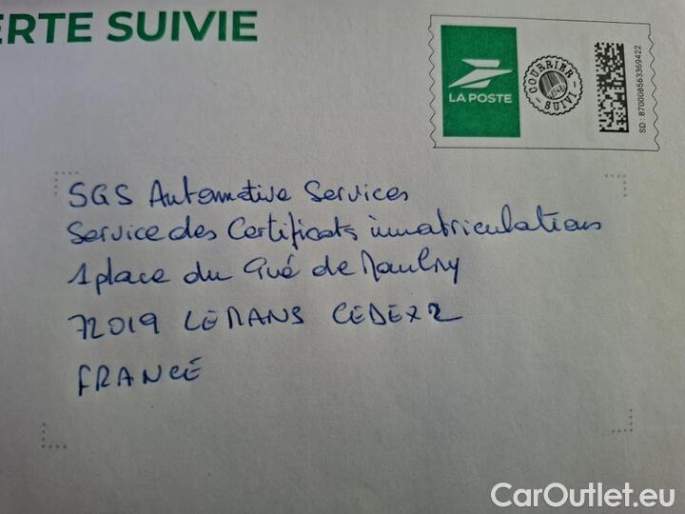 ERTE SUIVIE
LA POSTE
COURRIER
SUIVI
SD : 87000856336942
SGS Automotive Services
Service des Certificats immatriculations
1 place du Gué de Maulny
72019 LE MANS CEDEX 2
FRANCE
CarOutlet.eu